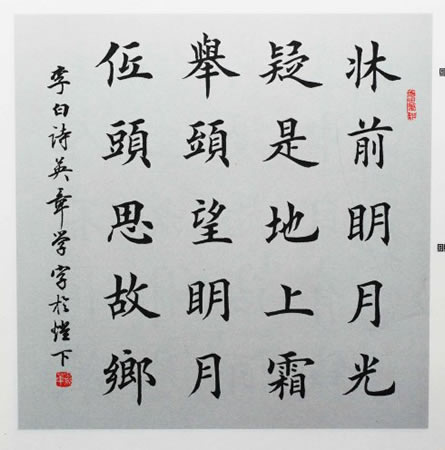 牀前明月光
疑是地上霜
舉頭望明月
低頭思故鄉
李白诗英章学字於燈下